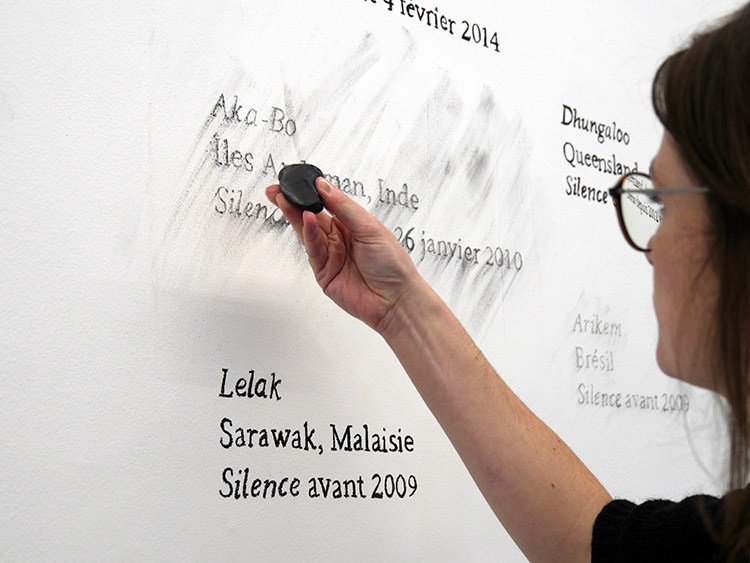 4 février 2014
Aka-Bo
Îles man, Inde
26 janvier 2010
Dhungaloo
Queensland
Silence
Arikem
Brésil
Silence avant 2009
Lelak
Sarawak, Malaisie
Silence avant 2009